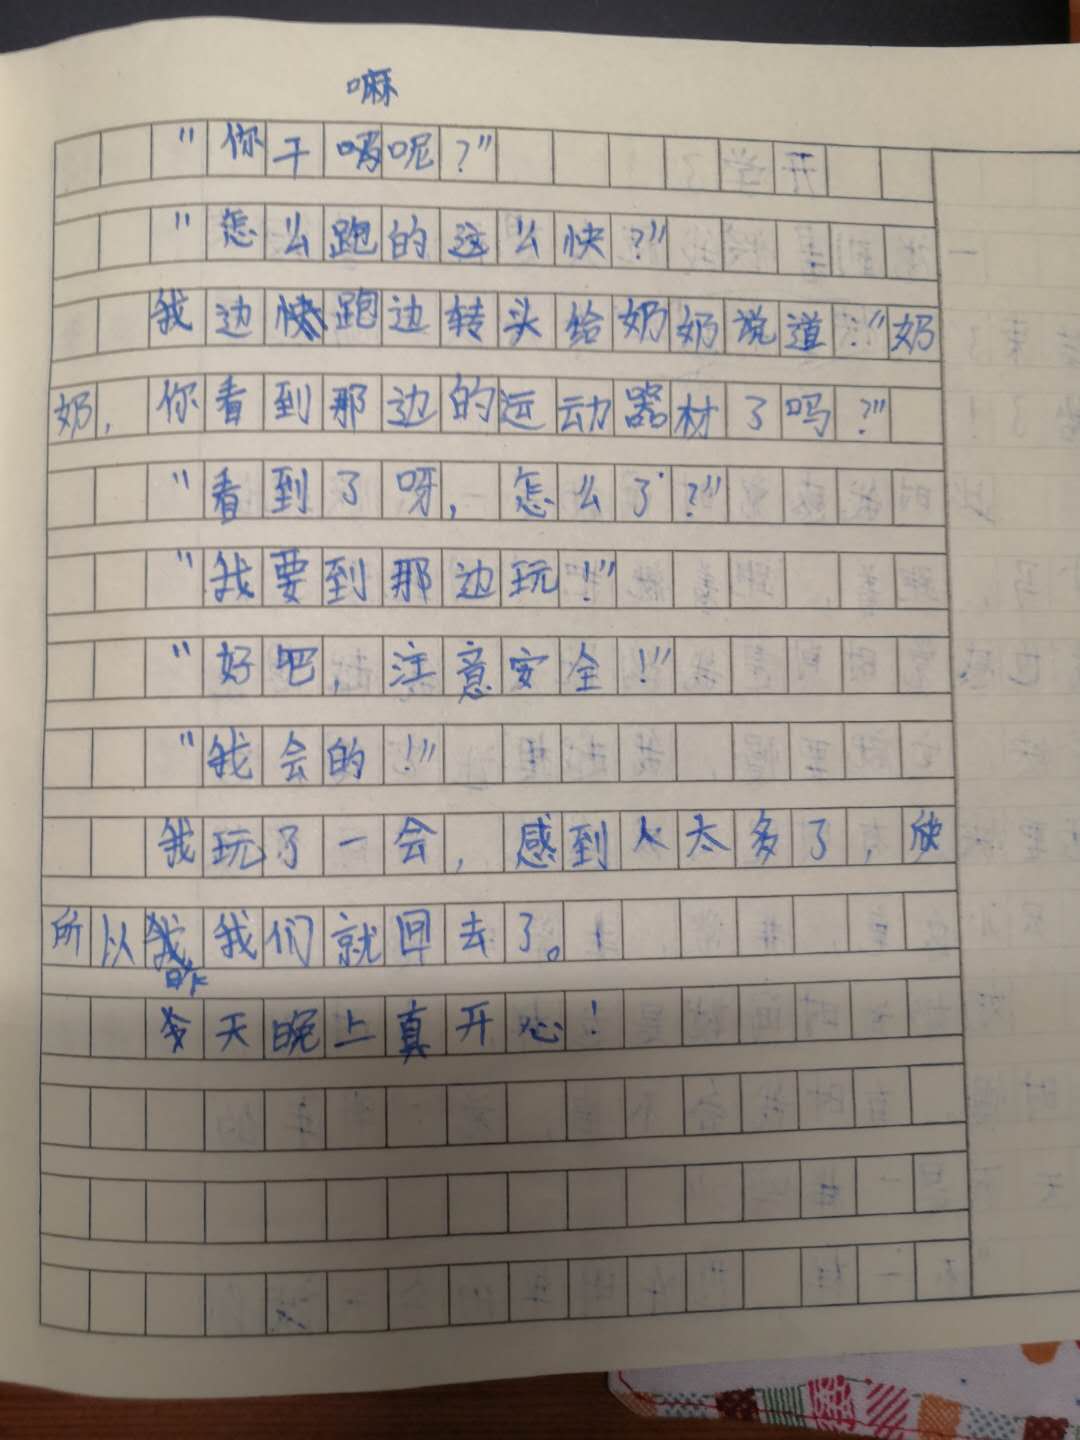 嘛
“你干嘛呢?”
“怎么跑的这么快?”
我边快跑边转头给奶奶说道:“奶
奶,你看到那边的运动器材了吗?”
“看到了呀,怎么了?”
“我要到那边玩!”
“好吧,注意安全!”
“我会的!”
我玩了一会,感到人太多了,
所以我们就回去了。
昨
天晚上真开心!